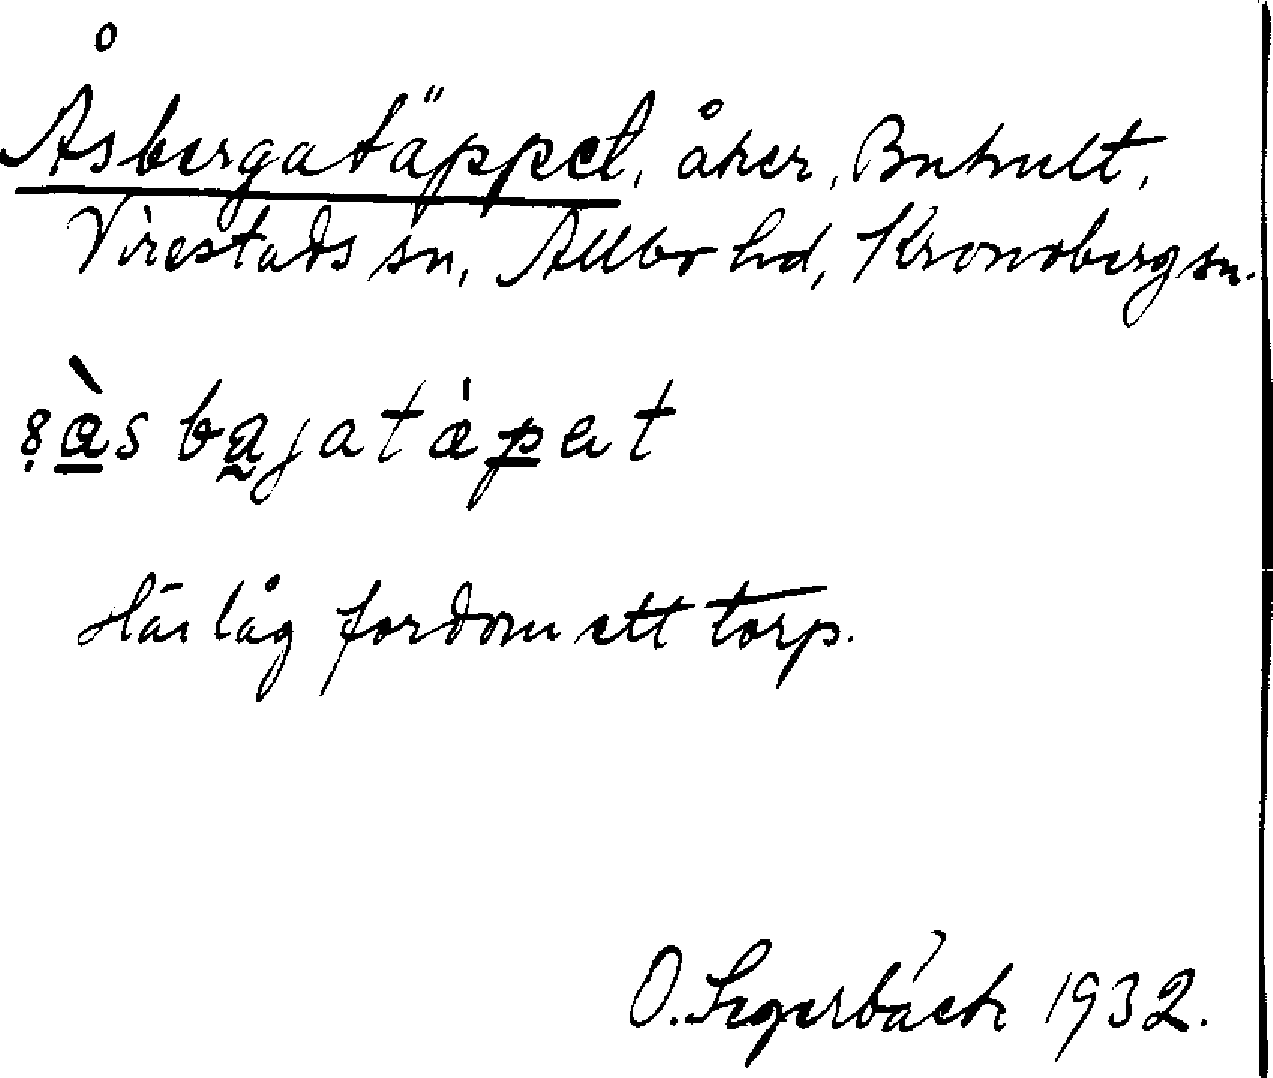 Åsbergatäppet, åker, Buhult,
Virestads sn, Allbo hd, Kronobergs ln.
Här låg fordom ett torp.
O. Segerbäck 1932.